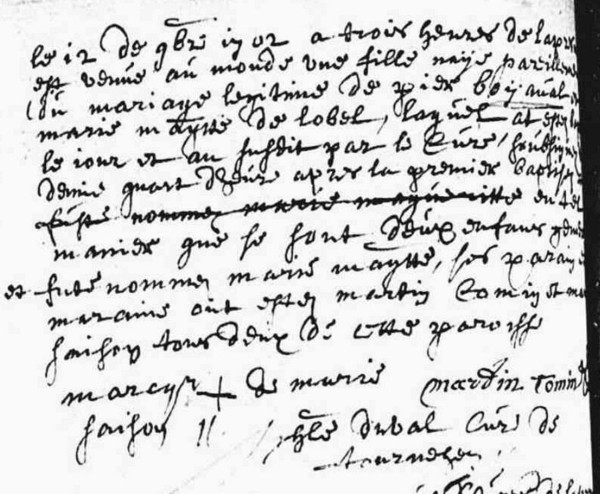 le 12 de 9bre 1702 a trois heures de lapre
est venue au monde une fille naije pareilleme
du mariage legitime de pier boijaval et
marie magtte de lobel, laquel at esté
le iour et an susdit par le Curé soubsigne
demie quart dheure apres la premier baptisee
fusté nommez marie magueritte en tel
manier que se sont deux enfans gemea
et futé nommez marie magtte, ses parain
maraine ont estez martin Comin et ma
saison tous deux de cette paroisse
marcqz + de marie martin Comin
saison hle duval Curé de
tournehem